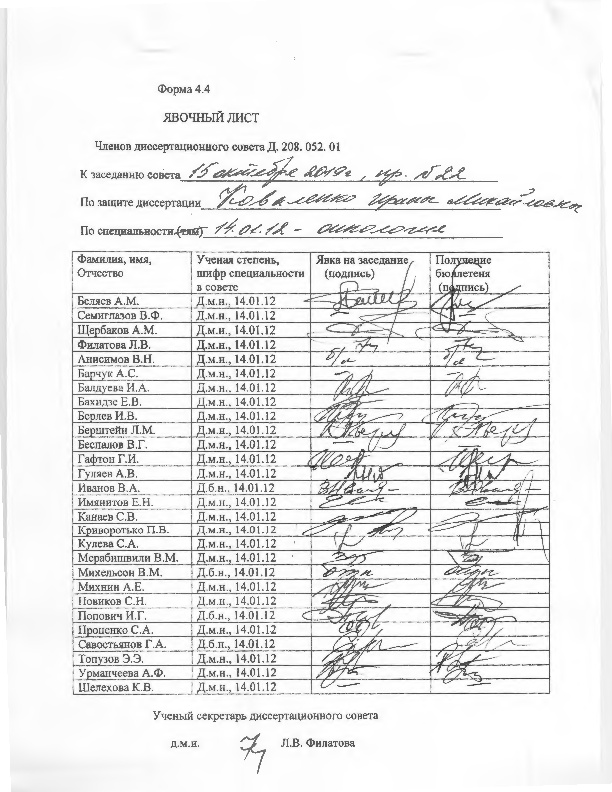 Форма 4.4
ЯВОЧНЫЙ ЛИСТ
Членов диссертационного совета Д. 208. 052. 01
К заседанию совета 15 октября 2019г, пр. №22
По защите диссертации Коваленко Ирины Михайловны
По специальности (тям) 14.01.12 - онкология
Фамилия, имя, Отчество Ученая степень, шифр специальности в совете Явка на заседание (подпись) Получение бюллетеня (подпись)
Беляев А.М. Д.м.н., 14.01.12
Семиглазов В.Ф. Д.м.н., 14.01.12
Щербаков А.М. Д.м.н., 14.01.12
Филатова Л.В. Д.м.н., 14.01.12
Анисимов В.Н. Д.м.н., 14.01.12
Барчук А.С. Д.м.н., 14.01.12
Балдуева И.А. Д.м.н., 14.01.12
Бахидзе Е.В. Д.м.н., 14.01.12
Берлев И.В. Д.м.н., 14.01.12
Берштейн Л.М. Д.м.н., 14.01.12
Беспалов В.Г. Д.м.н., 14.01.12
Гафтон Г.И. Д.м.н., 14.01.12
Гуляев А.В. Д.м.н., 14.01.12
Иванов В.А. Д.б.н., 14.01.12
Имянитов Е.Н. Д.м.н., 14.01.12
Канаев С.В. Д.м.н., 14.01.12
Криворотько П.В. Д.м.н., 14.01.12
Кулева С.А. Д.м.н., 14.01.12
Мерабишвили В.М. Д.м.н., 14.01.12
Михельсон В.М. Д.б.н., 14.01.12
Михнин А.Е. Д.м.н., 14.01.12
Новиков С.Н. Д.м.н., 14.01.12
Попович И.Г. Д.б.н., 14.01.12
Проценко С.А. Д.м.н., 14.01.12
Савостьянов Г.А. Д.б.н., 14.01.12
Топузов Э.Э. Д.м.н., 14.01.12
Урманчеева А.Ф. Д.м.н., 14.01.12
Шелехова К.В. Д.м.н., 14.01.12
Ученый секретарь диссертационного совета
д.м.н. Л.В. Филатова